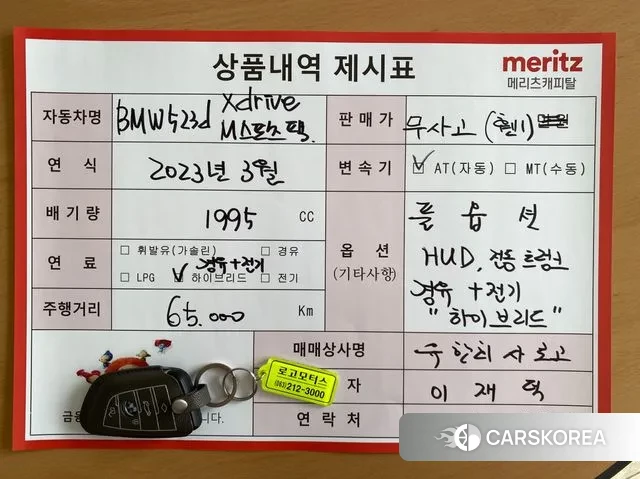 상품내역 제시표
meritz
메리츠캐피탈
자동차명 BMW 523d xdrive M스포츠팩 판매가 무사고 (휀1)
연식 2023년 3월 변속기 ☑ AT(자동) ☐ MT(수동)
배기량 1995 CC
연료 ☐ 휘발유(가솔린) ☐ 경유
☐ LPG ☑ 하이브리드 경유+전기 ☐ 전기
주행거리 65.000 Km
옵션
(기타사항)
풀옵션
HUD, 전동트렁크
경유+전기
"하이브리드"
매매상사명
자 이재혁
연락처
로고모터스
(063)212-3000
금융
니다.
CARSKOREA